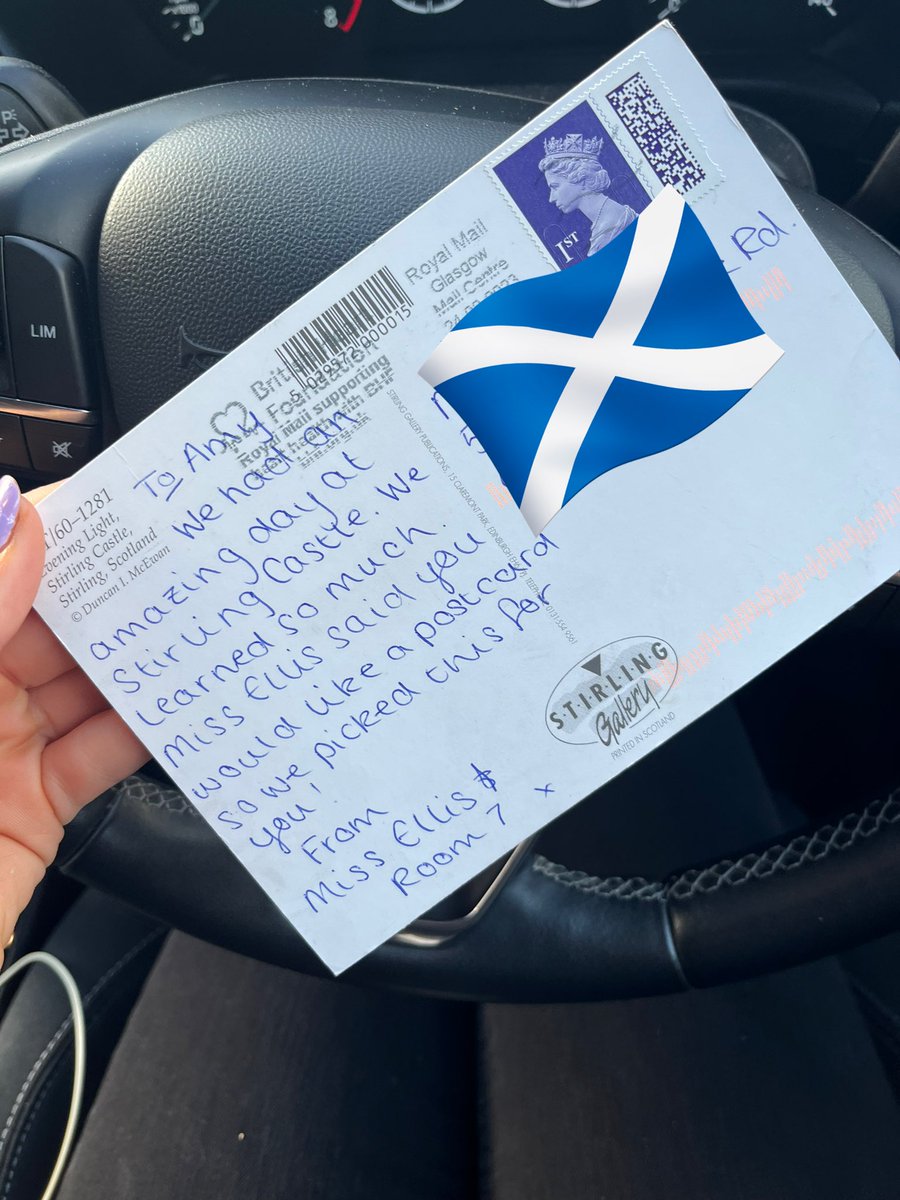 8
P
LIM
1ST
Rd.
Royal Mail
Glasgow
Mail Centre
5 032572 900015
Royal Mail supporting
heart health with BHF
T/60-1281
Evening Light,
Stirling Castle,
Stirling, Scotland
© Duncan I. McEwan
To Amy
We had an
amazing day at
Stirling Castle. We
learned so much.
Miss Ellis said you
would like a postcard
so we picked this for
you!
From
Miss Ellis &
Room 7 x
STIRLING GALLERY PUBLICATIONS, 15 CLAREMONT PARK, EDINBURGH
0131 554 9561
STIRLING
Gallery
PRINTED IN SCOTLAND